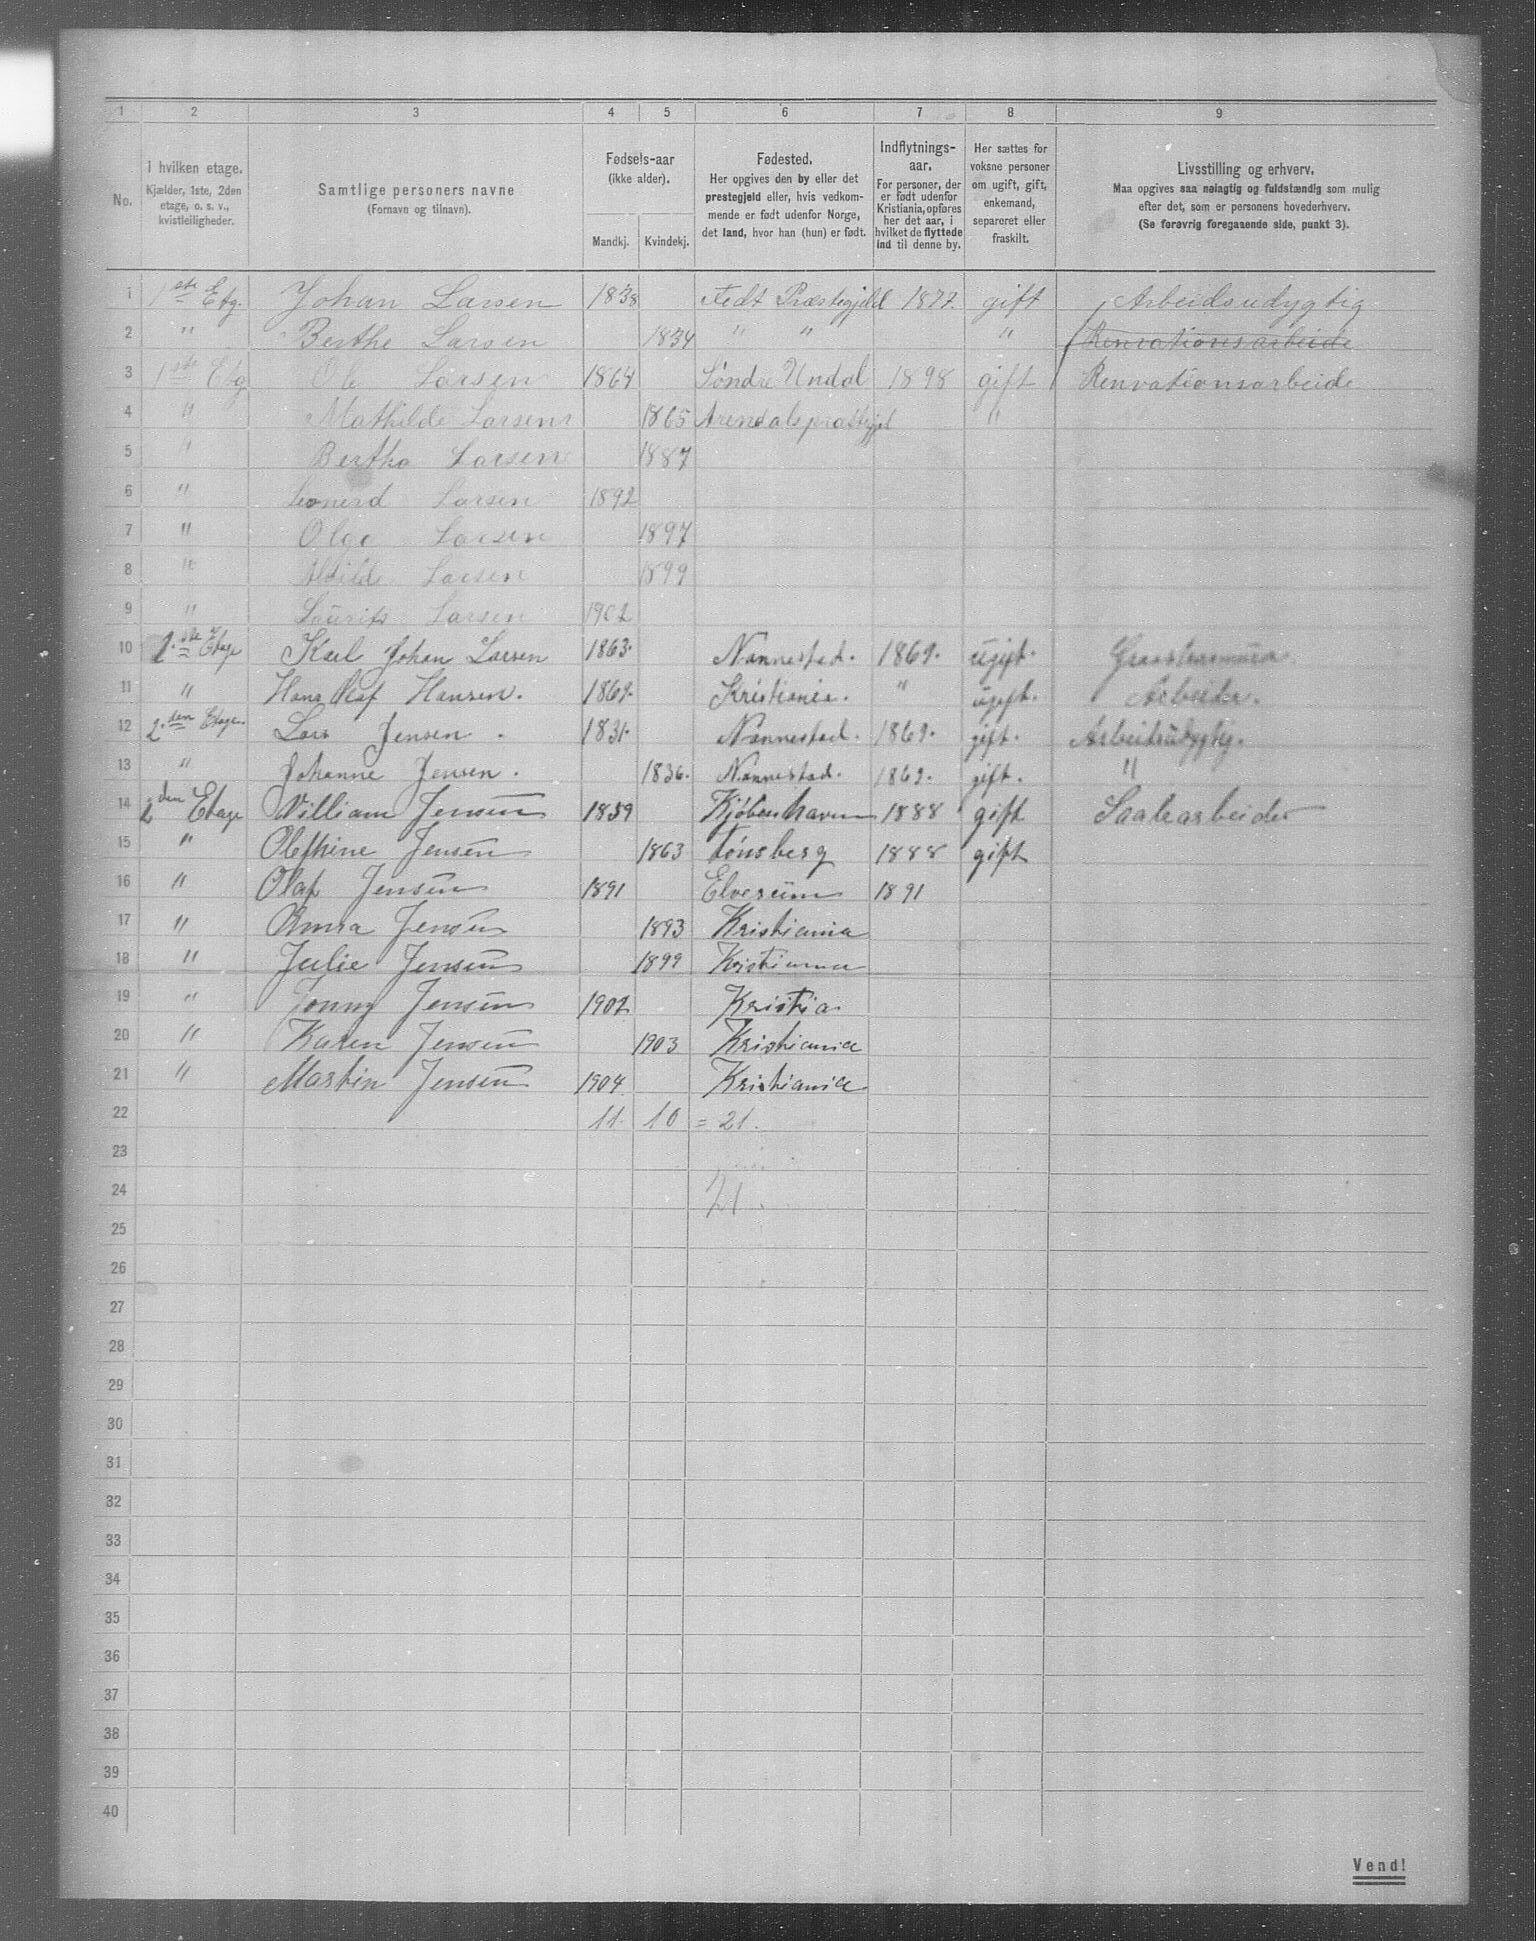 1 2 3 4 5 6 7 8 9
No. I hvilken etage. Kjælder, 1ste, 2den etage, o. s. v., kvistleiligheder. Samtlige personers navne (Fornavn og tilnavn). Fødsels-aar (ikke alder). Mandkj. Kvindekj. Fødested. Her opgives den by eller det prestegjeld eller, hvis vedkommende er født udenfor Norge, det land, hvor han (hun) er født. Indflytnings-aar. For personer, der er født udenfor Kristiania, opføres her det aar, i hvilket de flyttede ind til denne by. Her sættes for voksne personer om ugift, gift, enkemand, separeret eller fraskilt. Livsstilling og erhverv. Maa opgives saa nøiagtig og fuldstændig som mulig efter det, som er personens hovederhverv. (Se forøvrig foregaaende side, punkt 3).
1 1ste Etg. Johan Larsen 1838 Fedt Præstegjeld 1877. gift Arbeidsudygtig
2 " Berthe Larsen 1834 " " " Renvationsarbeide
3 1ste Etg Ole Larsen 1864 Søndre Undal 1898 gift Renvationsarbeide
4 " Mathilde Larsen 1865 Arendals præstegjel "
5 " Bertha Larsen 1887
6 " Leonerd Larsen 1892
7 " Olga Larsen 1897
8 " Larsen 1899
9 " Laurits Larsen 1902
10 1.ste Etage Karl Johan Larsen 1863. Nannestad. 1869. ugift.
11 " Hans Olaf Hansen. 1869. Kristiania. " ugift. Arbeider.
12 2.den Etage. Lars Jensen. 1831. Nannestad. 1869. gift. Arbeitsüdygtig.
13 " Johanne Jensen. 1836. Nannestad. 1869. gift. "
14 2den Etage William Jensen 1859 Kjøbenhavn 1888 gift Saalearbeider
15 " Olefhine Jensen 1863 Tønsberg 1888 gift
16 " Olaf Jensen 1891 Elverum 1891
17 " Anna Jensen 1893 Kristiania
18 " Julie Jensen 1899 Kristiania
19 " Jonny Jensen 1902 Kristia
20 " Karen Jensen 1903 Kristiania
21 " Martin Jensen 1904 Kristiania
22 11. 10 = 21.
23
24 21.
25
26
27
28
29
30
31
32
33
34
35
36
37
38
39
40
Vend!